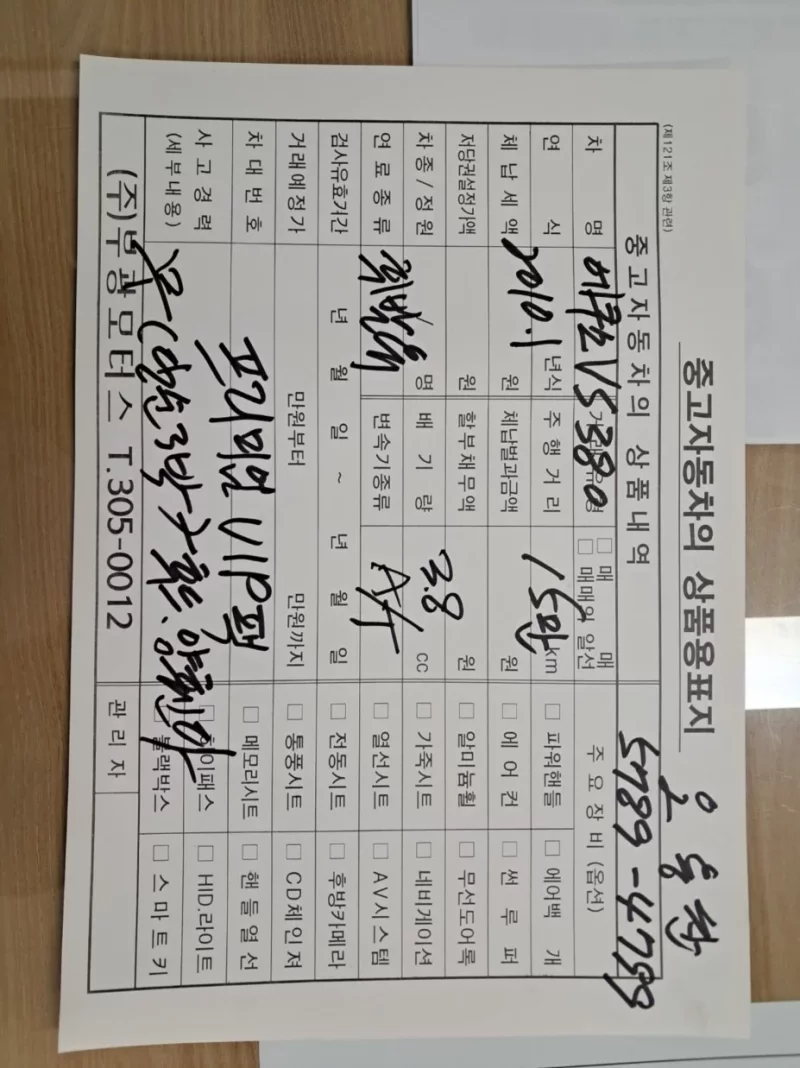 중고자동차의 상품용표지
(제121조 제3항 관련)
중고자동차의 상품내역
주요장비 (옵션)
5789-4799
차 명
에쿠스 VS 380
□ 매 매
□ 매매의 알선
연 식
2010.1 년식
주행거리
15만 km
□ 파워핸들
□ 에어백 개
체납세액
원
체납범과금액
원
□ 에어컨
□ 썬루퍼
저당권설정가액
원
할부채무액
원
□ 알미늄휠
□ 무선도어록
차종/정원
명
배기량
3.8 cc
□ 가죽시트
□ 네비게이션
연료종류
휘발유
변속기종류
A/T
□ 열선시트
□ AV시스템
검사유효기간
년 월 일 ~ 년 월 일
□ 전동시트
□ 후방카메라
거래예정가
만원부터
만원까지
□ 통풍시트
□ CD체인져
차대번호
프리미엄 VIP팩
□ 메모리시트
□ 핸들열선
사고경력
(세부내용)
□ 하이패스
□ HID.라이트
□ 블랙박스
□ 스마트키
(주)부광모터스 T.305-0012
관리자